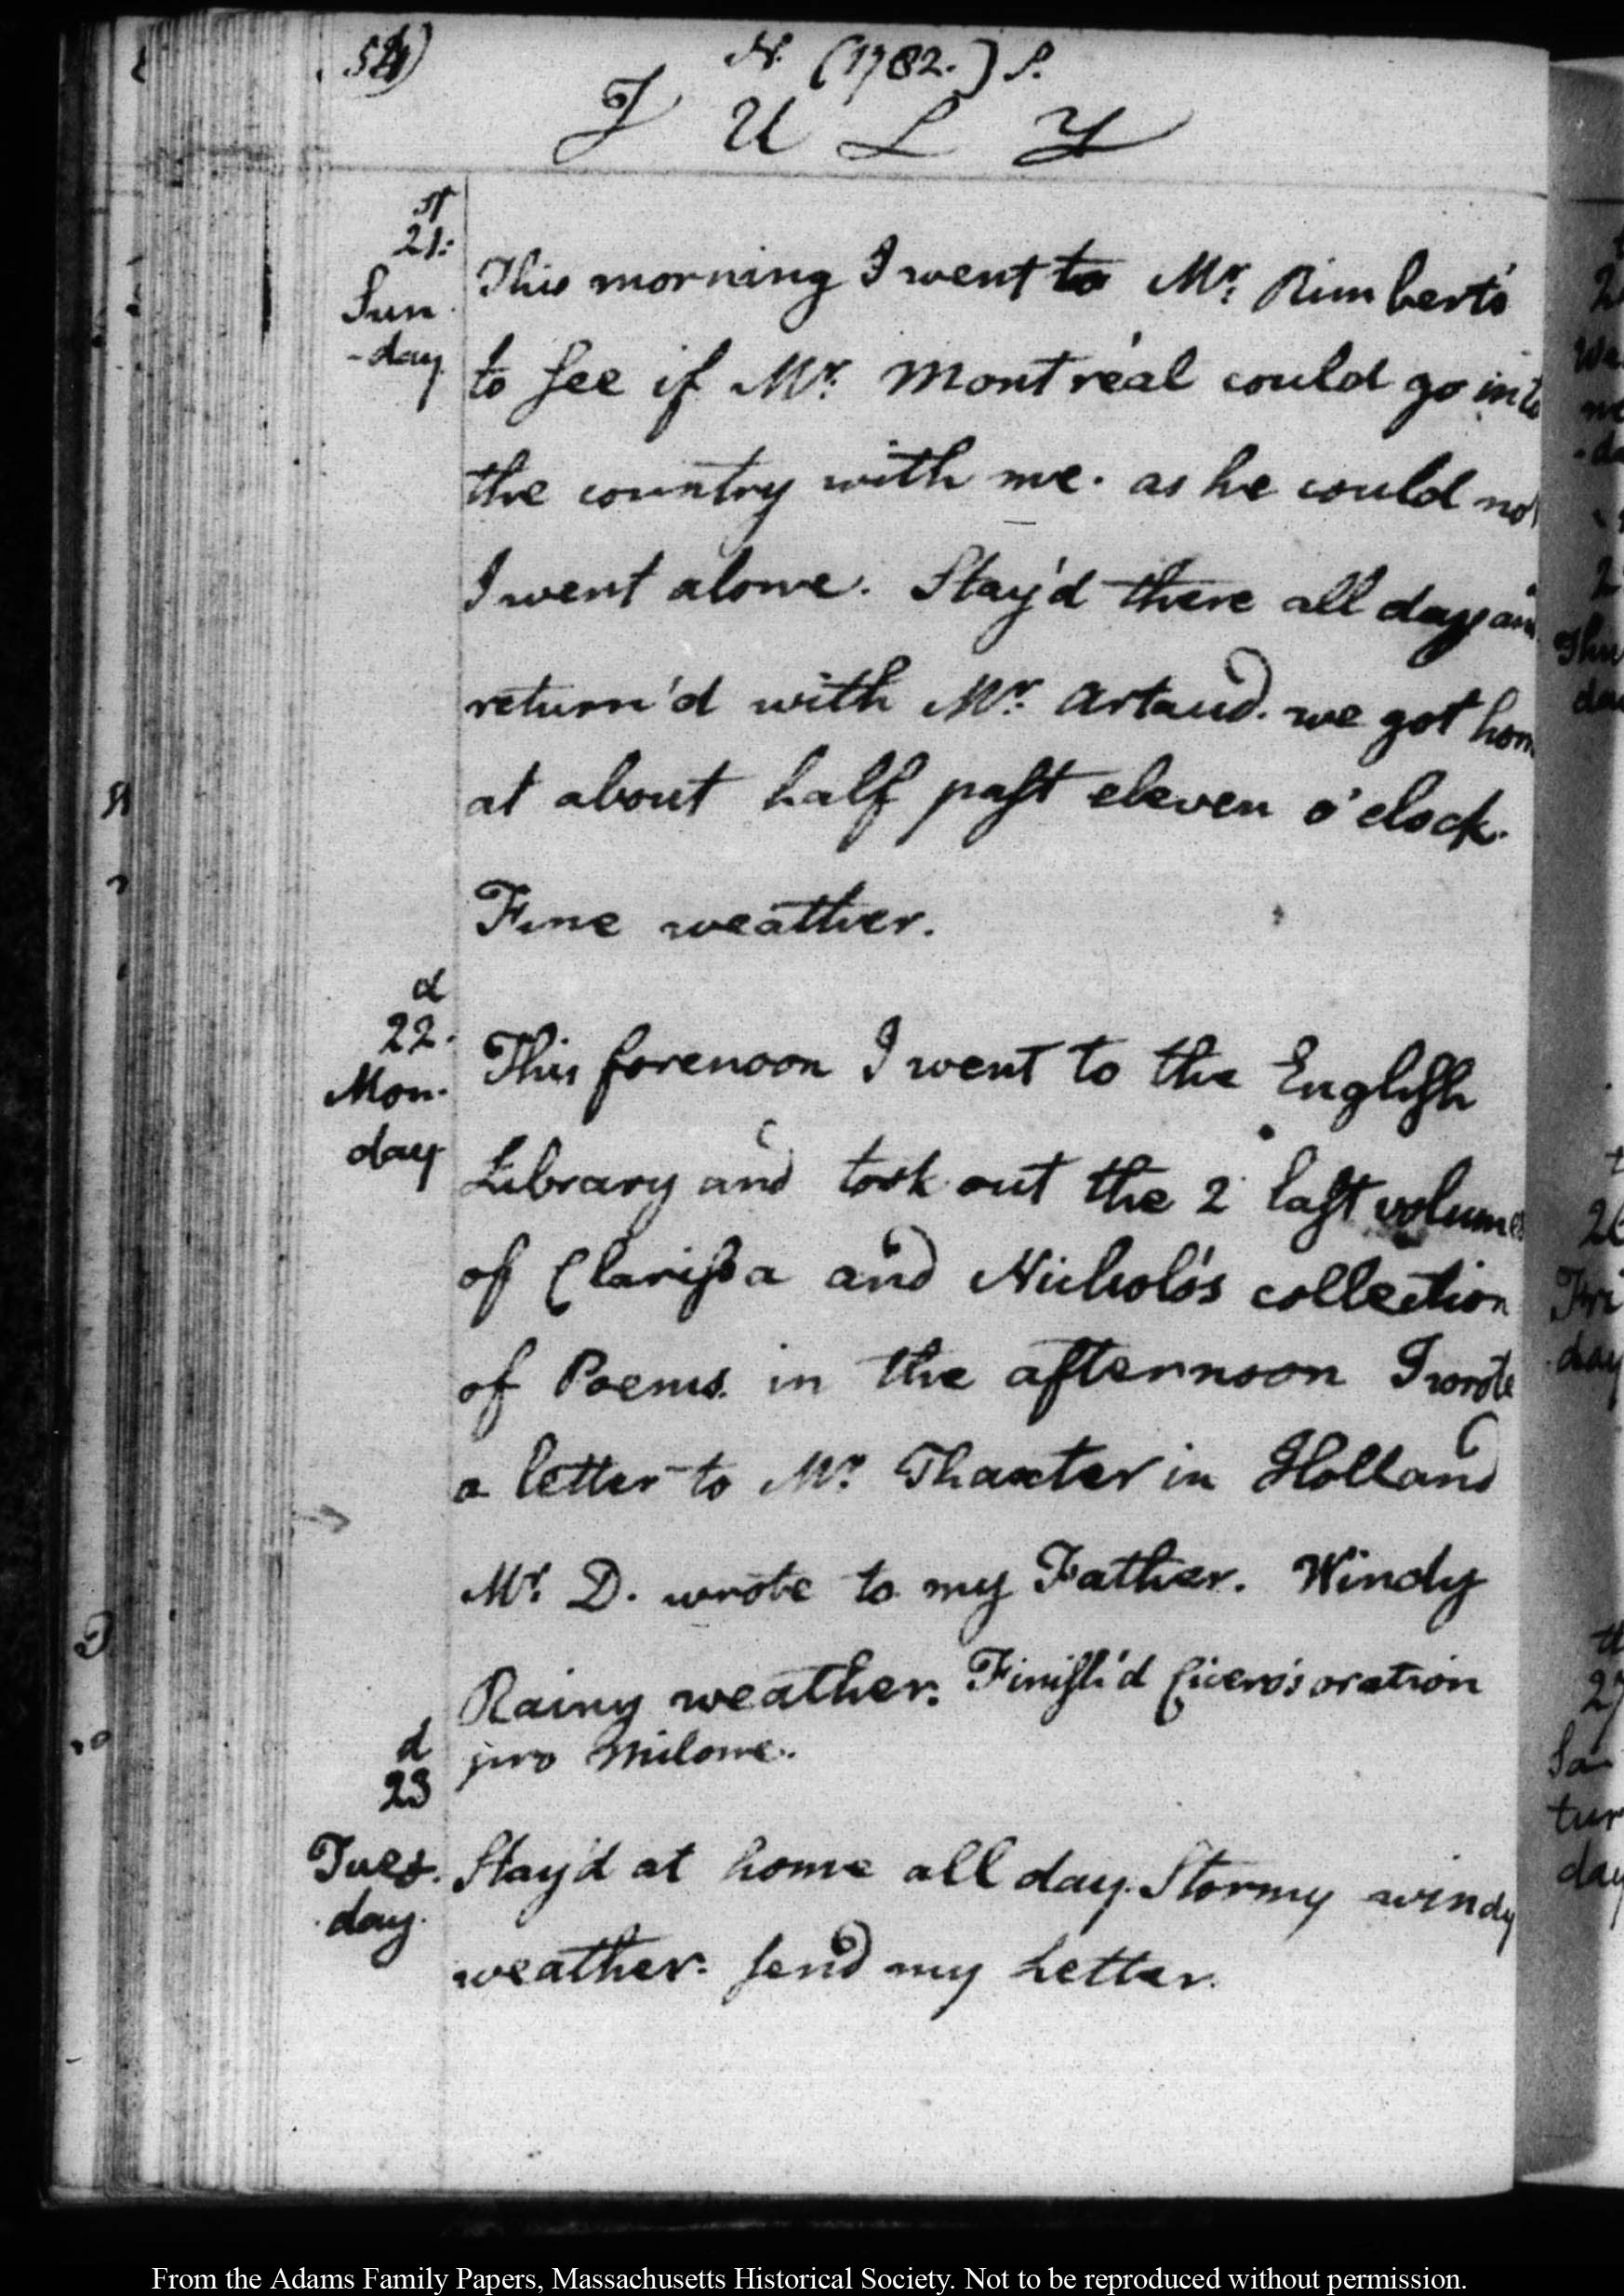 N. (1782.) S.
JULY
st
21:
Sun
-day
This morning I went to Mr: Rimbert's
to see if Mr. Montréal could go into
the country with me. as he could not
I went alone. Stay'd there all day and
return'd with Mr. Artaud. we got hom
at about half past eleven o'clock.
Fine weather.
d
22.
Mon.
day
This forenoon I went to the English
Library and took out the 2 last volumes
of Clarissa and Nichols's collection
of Poems. in the afternoon I wrote
a letter to Mr. Thaxter in Holland
Mr. D. wrote to my Father. Windy
Rainy weather. Finish'd Cicero's oration
pro Milone.
d
23
Tues.
day.
Stay'd at home all day. Stormy windy
weather. send my Letter.
From the Adams Family Papers, Massachusetts Historical Society. Not to be reproduced without permission.